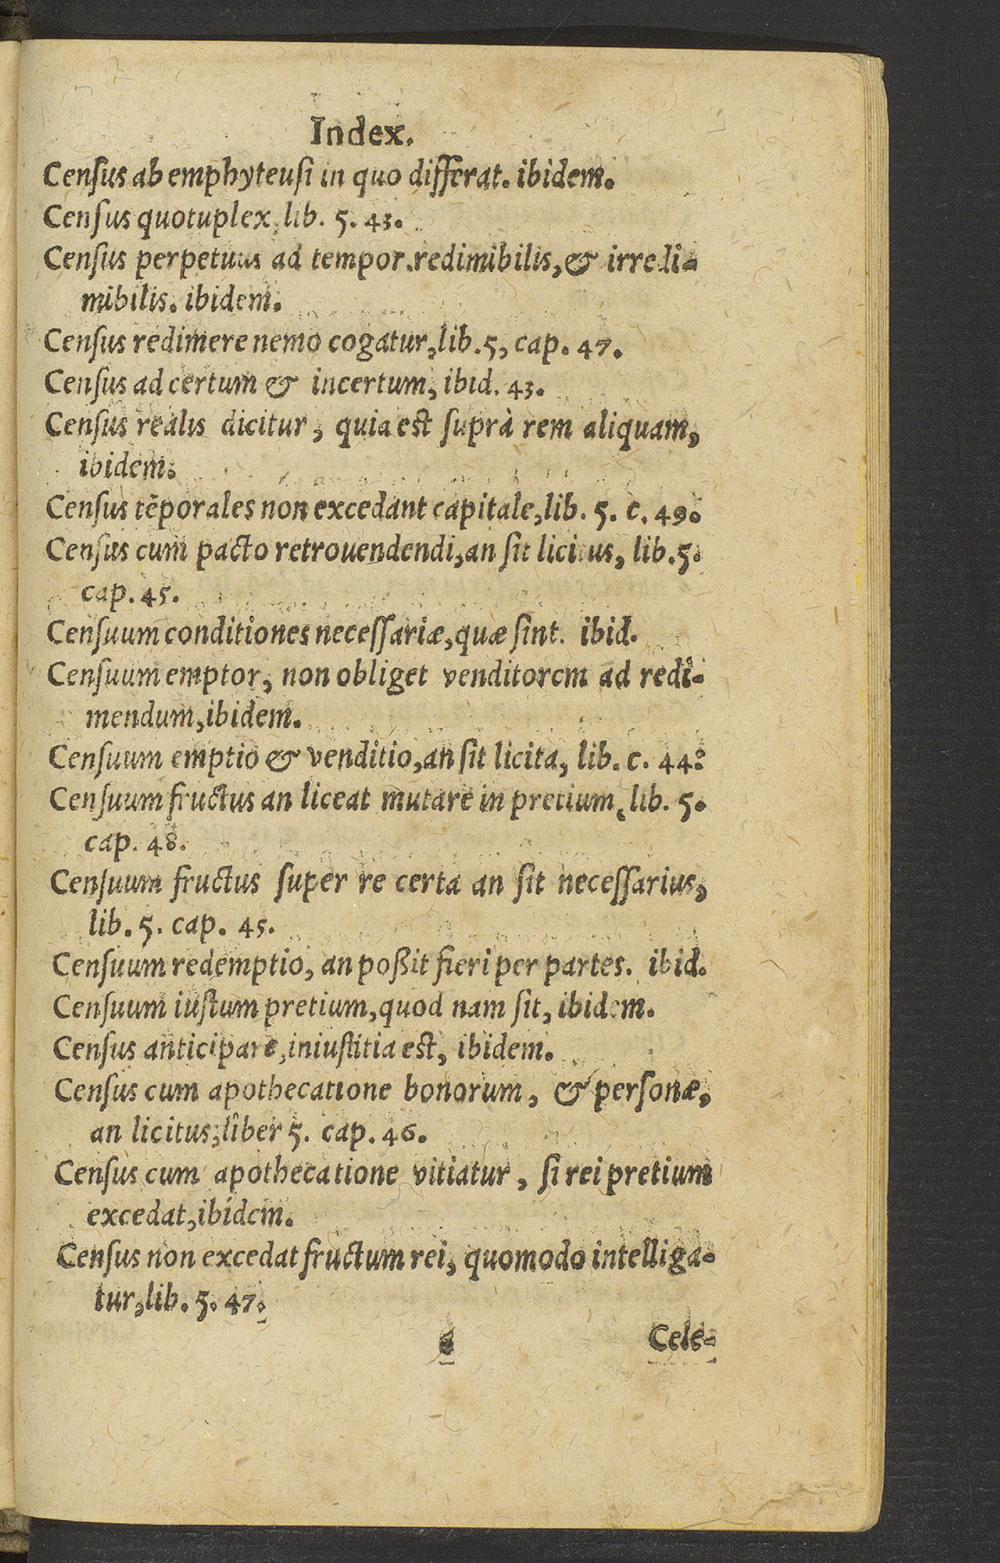 Index.
Cenſus ab emphyteuſi in quo differat. ibidem.
Cenſus quotuplex, lib. 5. 43.
Cenſus perpetuus ad tempor. redimibilis, & irredi-
mibilis. ibidem.
Cenſus redimere nemo cogatur, lib. 5, cap. 47.
Cenſus ad certum & incertum, ibid. 43.
Cenſus realis dicitur, quia eſt ſuprà rem aliquam,
ibidem.
Cenſus tēporales non excedant capitale, lib. 5. c. 49.
Cenſus cum pacto retrouendendi, an ſit licitus, lib. 5.
cap. 45.
Cenſuum conditiones neceſſariæ, quæ ſint. ibid.
Cenſuum emptor, non obliget venditorem ad redi-
mendum, ibidem.
Cenſuum emptio & venditio, an ſit licita, lib. c. 44.
Cenſuum fructus an liceat mutare in pretium, lib. 5.
cap. 48.
Cenſuum fructus ſuper re certa an ſit neceſſarius,
lib. 5. cap. 45.
Cenſuum redemptio, an poßit fieri per partes. ibid.
Cenſuum iuſtum pretium, quod nam ſit, ibidem.
Cenſus anticipare, iniuſtitia eſt, ibidem.
Cenſus cum apothecatione bonorum, & perſonæ,
an licitus, liber 5. cap. 46.
Cenſus cum apothecatione vitiatur, ſi rei pretium
excedat, ibidem.
Cenſus non excedat fructum rei, quomodo intelliga-
tur, lib. 5. 47.
Cele-